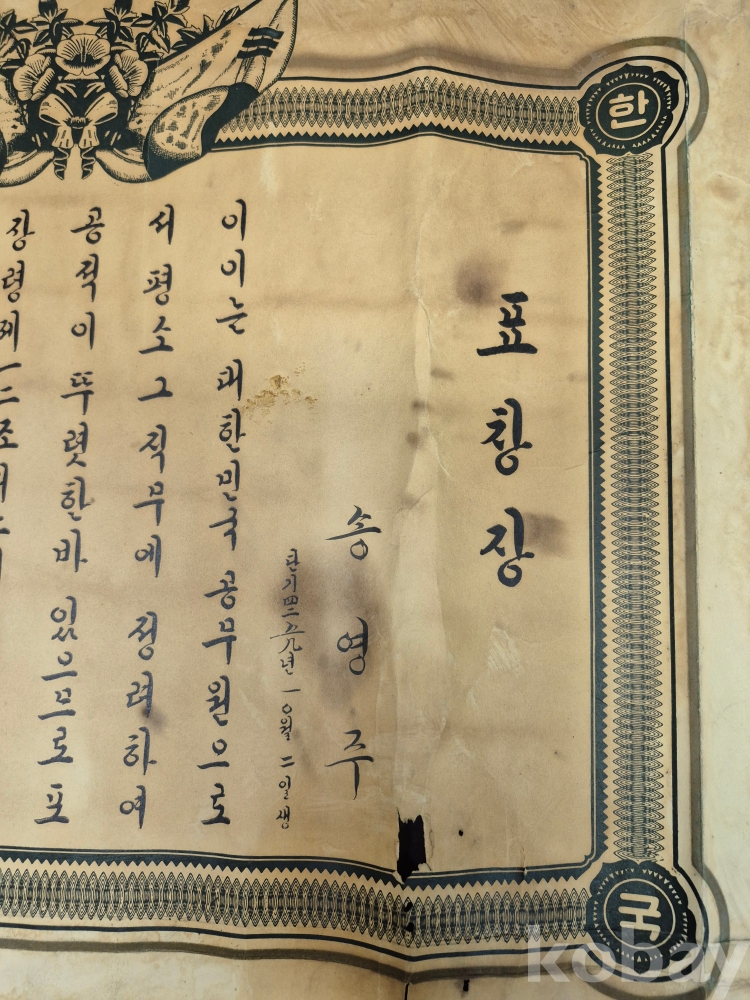 한
표창장
송영주
단기四二五九년 一○월 二일생
이이는 대한민국 공무원으로
서 평소 그 직무에 정려하여
공적이 뚜렷한바 있으므로 포
장령제一二조
국
kobay